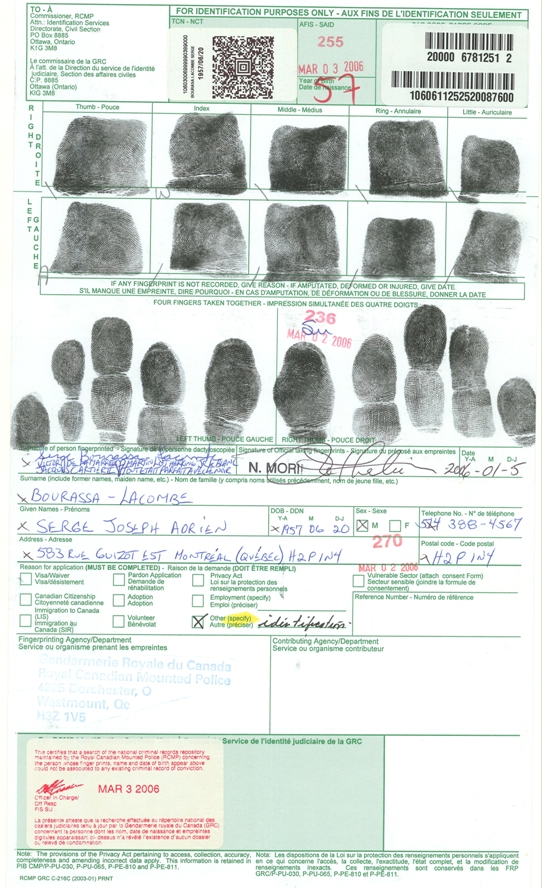 TO - À
Commissioner, RCMP
Attn.: Identification Services
Directorate, Civil Section
PO Box 8885
Ottawa, Ontario
K1G 3M8
Le commissaire de la GRC
À l'att. de la Direction du service de l'identité
judiciaire, Section des affaires civiles
C.P. 8885
Ottawa (Ontario)
K1G 3M8
FOR IDENTIFICATION PURPOSES ONLY - AUX FINS DE L'IDENTIFICATION SEULEMENT
TCN - NCT
BOURASSA LACOMBE SERGE
1957/06/20
AFIS - SAID
255
MAR 03 2006
Year of Birth
Date de naissance
57
20000 6781251 2
1060611252520087600
RIGHT DROITE
Thumb - Pouce
Index
Middle - Médius
Ring - Annulaire
Little - Auriculaire
LEFT GAUCHE
IF ANY FINGERPRINT IS NOT RECORDED, GIVE REASON - IF AMPUTATED, DEFORMED OR INJURED, GIVE DATE
S'IL MANQUE UNE EMPREINTE, DIRE POURQUOI - EN CAS D'AMPUTATION, DE DÉFORMATION OU DE BLESSURE, DONNER LA DATE
FOUR FINGERS TAKEN TOGETHER - IMPRESSION SIMULTANÉE DES QUATRE DOIGTS
236
MAR 02 2006
LEFT THUMB - POUCE GAUCHE
RIGHT THUMB - POUCE DROIT
Signature of person fingerprinted - Signature de la personne dactyloscopiée
Signature of Official taking fingerprints - Signature du préposé aux empreintes
Date
Y-A M D-J
N. MORIN
2006-01-5
Surname (include former names, maiden name, etc.) - Nom de famille (y compris noms utilisés précédemment, nom de jeune fille, etc.)
x BOURASSA - LACOMBE
Given Names - Prénoms
x SERGE JOSEPH ADRIEN
DOB - DDN
Y-A M D-J
x 1957 06 20
Sex - Sexe
X M F
Telephone No. - N° de téléphone
514 388-4567
Address - Adresse
x 583 RUE GUIZOT EST MONTRÉAL (QUÉBEC) H2P 1N4
270
MAR 02 2006
Postal code - Code postal
x H2P 1N4
Reason for application (MUST BE COMPLETED) - Raison de la demande (DOIT ÊTRE REMPLI)
Visa/Waiver
Visa/désistement
Pardon Application
Demande de réhabilitation
Privacy Act
Loi sur la protection des renseignements personnels
Vulnerable Sector (attach consent Form)
Secteur sensible (joindre la formule de consentement)
Canadian Citizenship
Citoyenneté canadienne
Adoption
Adoption
Employment (specify)
Emploi (préciser)
Reference Number - Numéro de référence
Immigration to Canada (LIS)
Immigration au Canada (SIR)
Volunteer
Bénévolat
X Other (specify)
Autre (préciser)
identification
Fingerprinting Agency/Department
Service ou organisme prenant les empreintes
Contributing Agency/Department
Service ou organisme contributeur
Gendarmerie Royale du Canada
Royal Canadian Mounted Police
4225 Dorchester, O
Westmount, Qc
H3Z 1V5
Service de l'identité judiciaire de la GRC
This certifies that a search of the national criminal records repository
maintained by the Royal Canadian Mounted Police (RCMP) concerning
the person whose finger prints, name and date of birth appear above
could not be associated to any existing criminal record of conviction.
MAR 3 2006
Officer in Charge/
Off Resp
FIS SIJ
La présente atteste que la recherche effectuée au répertoire national des
casiers judiciaires tenu à jour par la Gendarmerie royale du Canada (GRC)
concernant la personne dont le nom, date de naissance et empreintes
digitales apparaissent ci-dessus n'a révélé l'existence d'aucun dossier
ou relevé de condamnation
Note: The provisions of the Privacy Act pertaining to access, collection, accuracy,
completeness and amending incorrect data apply. This information is retained in
PIB CMP/P-PU-030, P-PU-065, P-PE-810 and P-PE-811.
Note: Les dispositions de la Loi sur la protection des renseignements personnels s'appliquent
en ce qui concerne l'accès, la collecte, l'exactitude, l'état complet, et la modification de
renseignements inexacts. Ces renseignements sont conservés dans les FRP
GRC/P-PU-030, P-PU-065, P-PE-810 et P-PE-811.
RCMP GRC C-216C (2003-01) PRNT